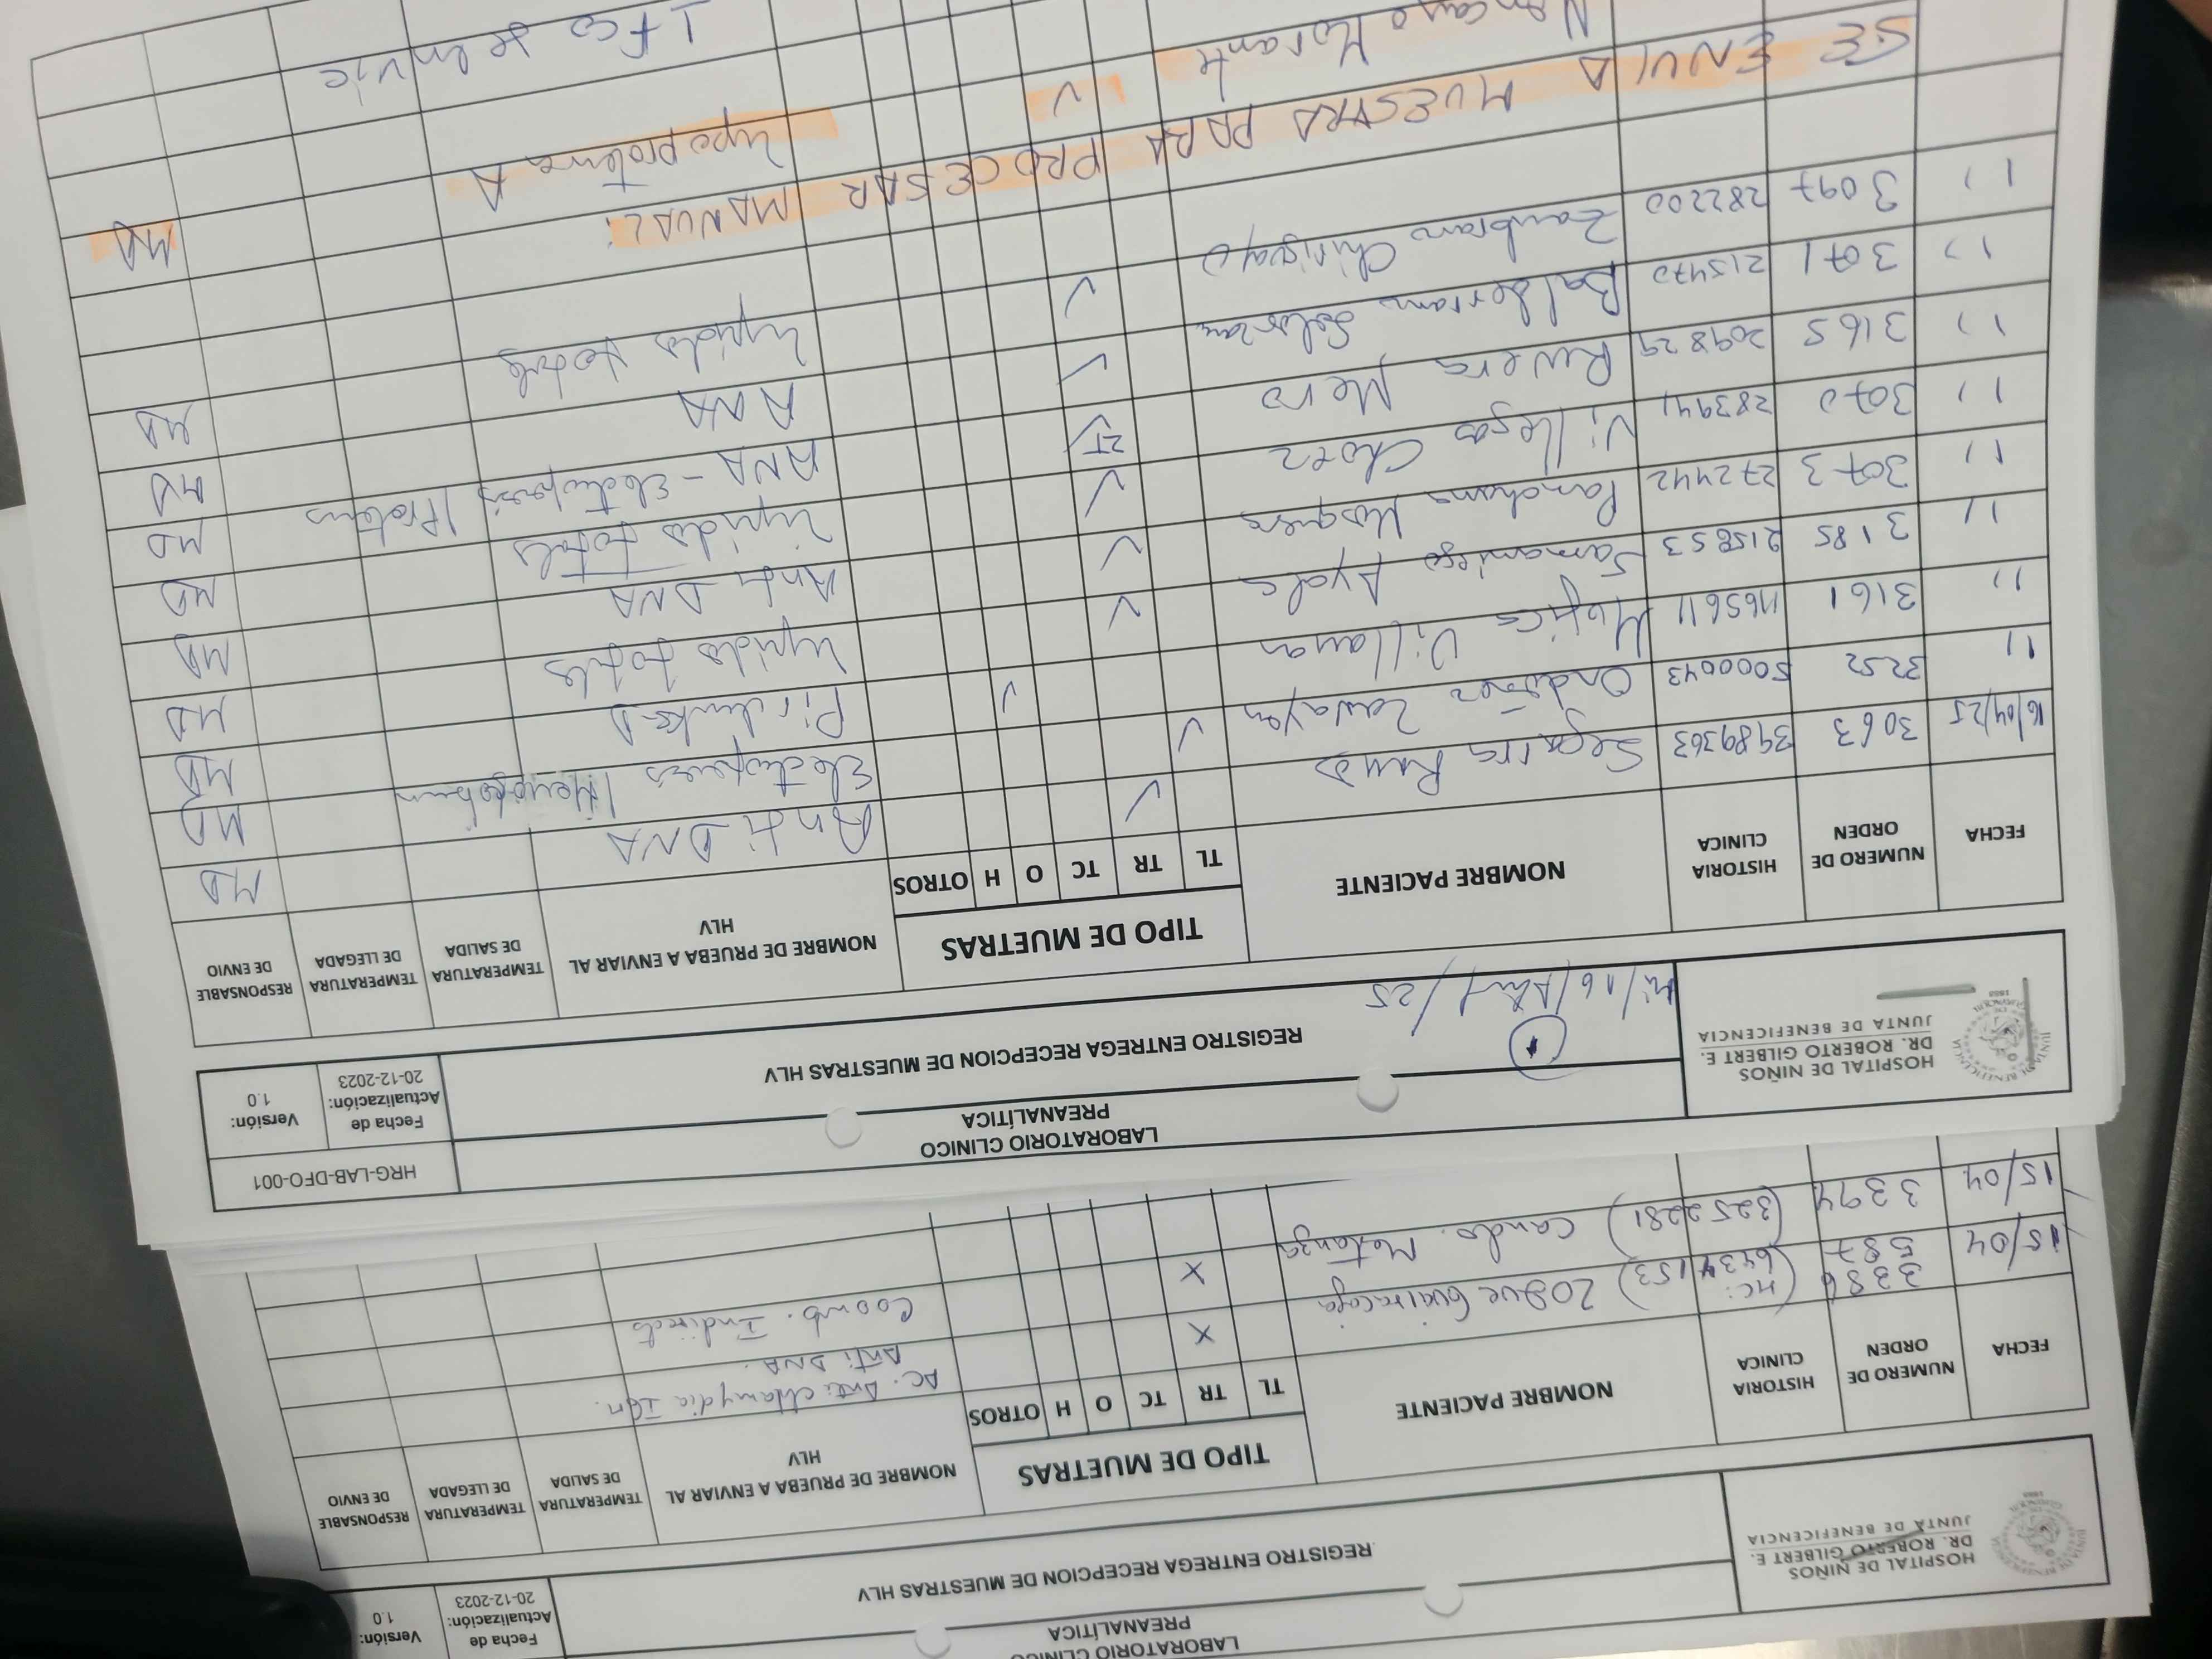 HRG-LAB-DFO-001
LABORATORIO CLINICO
PREANALÍTICA
HOSPITAL DE NIÑOS
DR. ROBERTO GILBERT E.
JUNTA DE BENEFICENCIA
REGISTRO ENTREGA RECEPCION DE MUESTRAS HLV
Fecha de Actualización: 20-12-2023
Versión: 1.0
FECHA NUMERO DE ORDEN HISTORIA CLINICA NOMBRE PACIENTE TIPO DE MUETRAS NOMBRE DE PRUEBA A ENVIAR AL HLV TEMPERATURA DE SALIDA TEMPERATURA DE LLEGADA RESPONSABLE DE ENVIO
TL TR TC O H OTROS
16/04/25 3063 3989363 Segura Anti DNA MD
11 3252 5000043 Ordoñez Electroforesis Hemoglobina MD
11 3161 Mojica Villamar MD
11 3185 215853 Samaniego Ayala Lipidos totales MD
11 3073 272442 Panchana Mosquera Anti DNA MD
11 3070 283941 Villegas Choez Lipidos totales MD
11 3165 209829 Rivera Mero 2T ANA - Electroforesis Proteinas MD
11 3071 215470 Solorzano ANA MD
11 3097 282200 Zambrano Chiriguayo Lipidos totales MD
SE ENVIA MUESTRA PARA PROCESAR MANUAL:
Morante Lipoproteina A MD
se envie
LABORATORIO CLINICO
PREANALÍTICA
HOSPITAL DE NIÑOS
DR. ROBERTO GILBERT E.
JUNTA DE BENEFICENCIA
REGISTRO ENTREGA RECEPCION DE MUESTRAS HLV
Fecha de Actualización: 20-12-2023
Versión: 1.0
FECHA NUMERO DE ORDEN HISTORIA CLINICA NOMBRE PACIENTE TIPO DE MUETRAS NOMBRE DE PRUEBA A ENVIAR AL HLV TEMPERATURA DE SALIDA TEMPERATURA DE LLEGADA RESPONSABLE DE ENVIO
TL TR TC O H OTROS
15/04 HC: x AC. Anti chlamydia IGM.
Anti DNA.
15/04 3394 (3252281) x Coomb. Indirecto